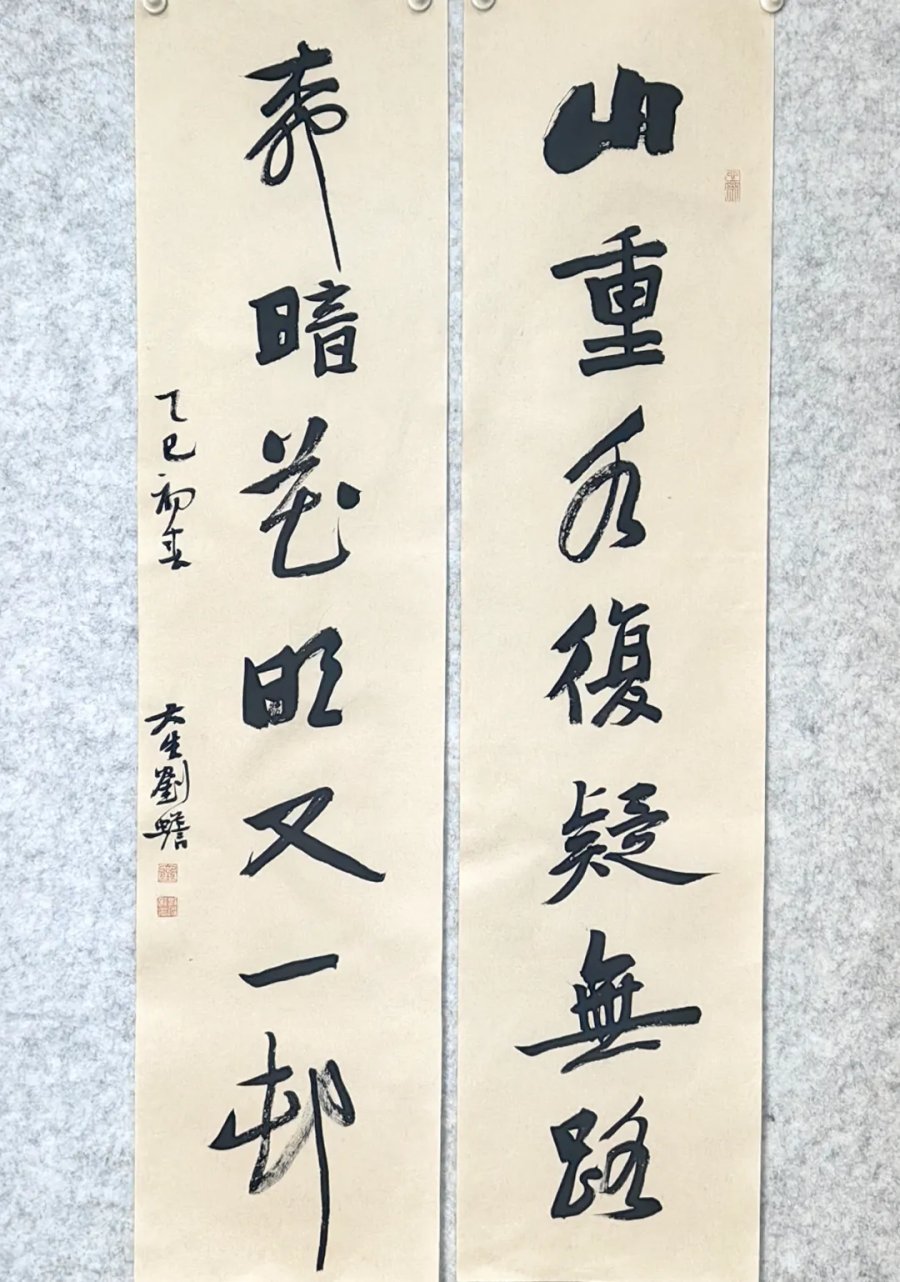 山重水復疑無路
柳暗花明又一邨
乙巳初春 大生劉蟾